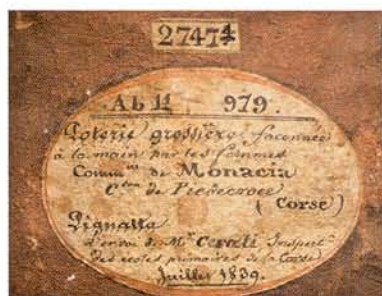 2747 4
Ab 11 979.
Poterie grossière, façonnée
à la main par les femmes
Comm.ne de Monacia
C.ton de Piedicroce
(Corse)
Pignatta
d'envoi de Mr. Cerati Inspect.r
des écoles primaires de la Corse
Juillet 1839.